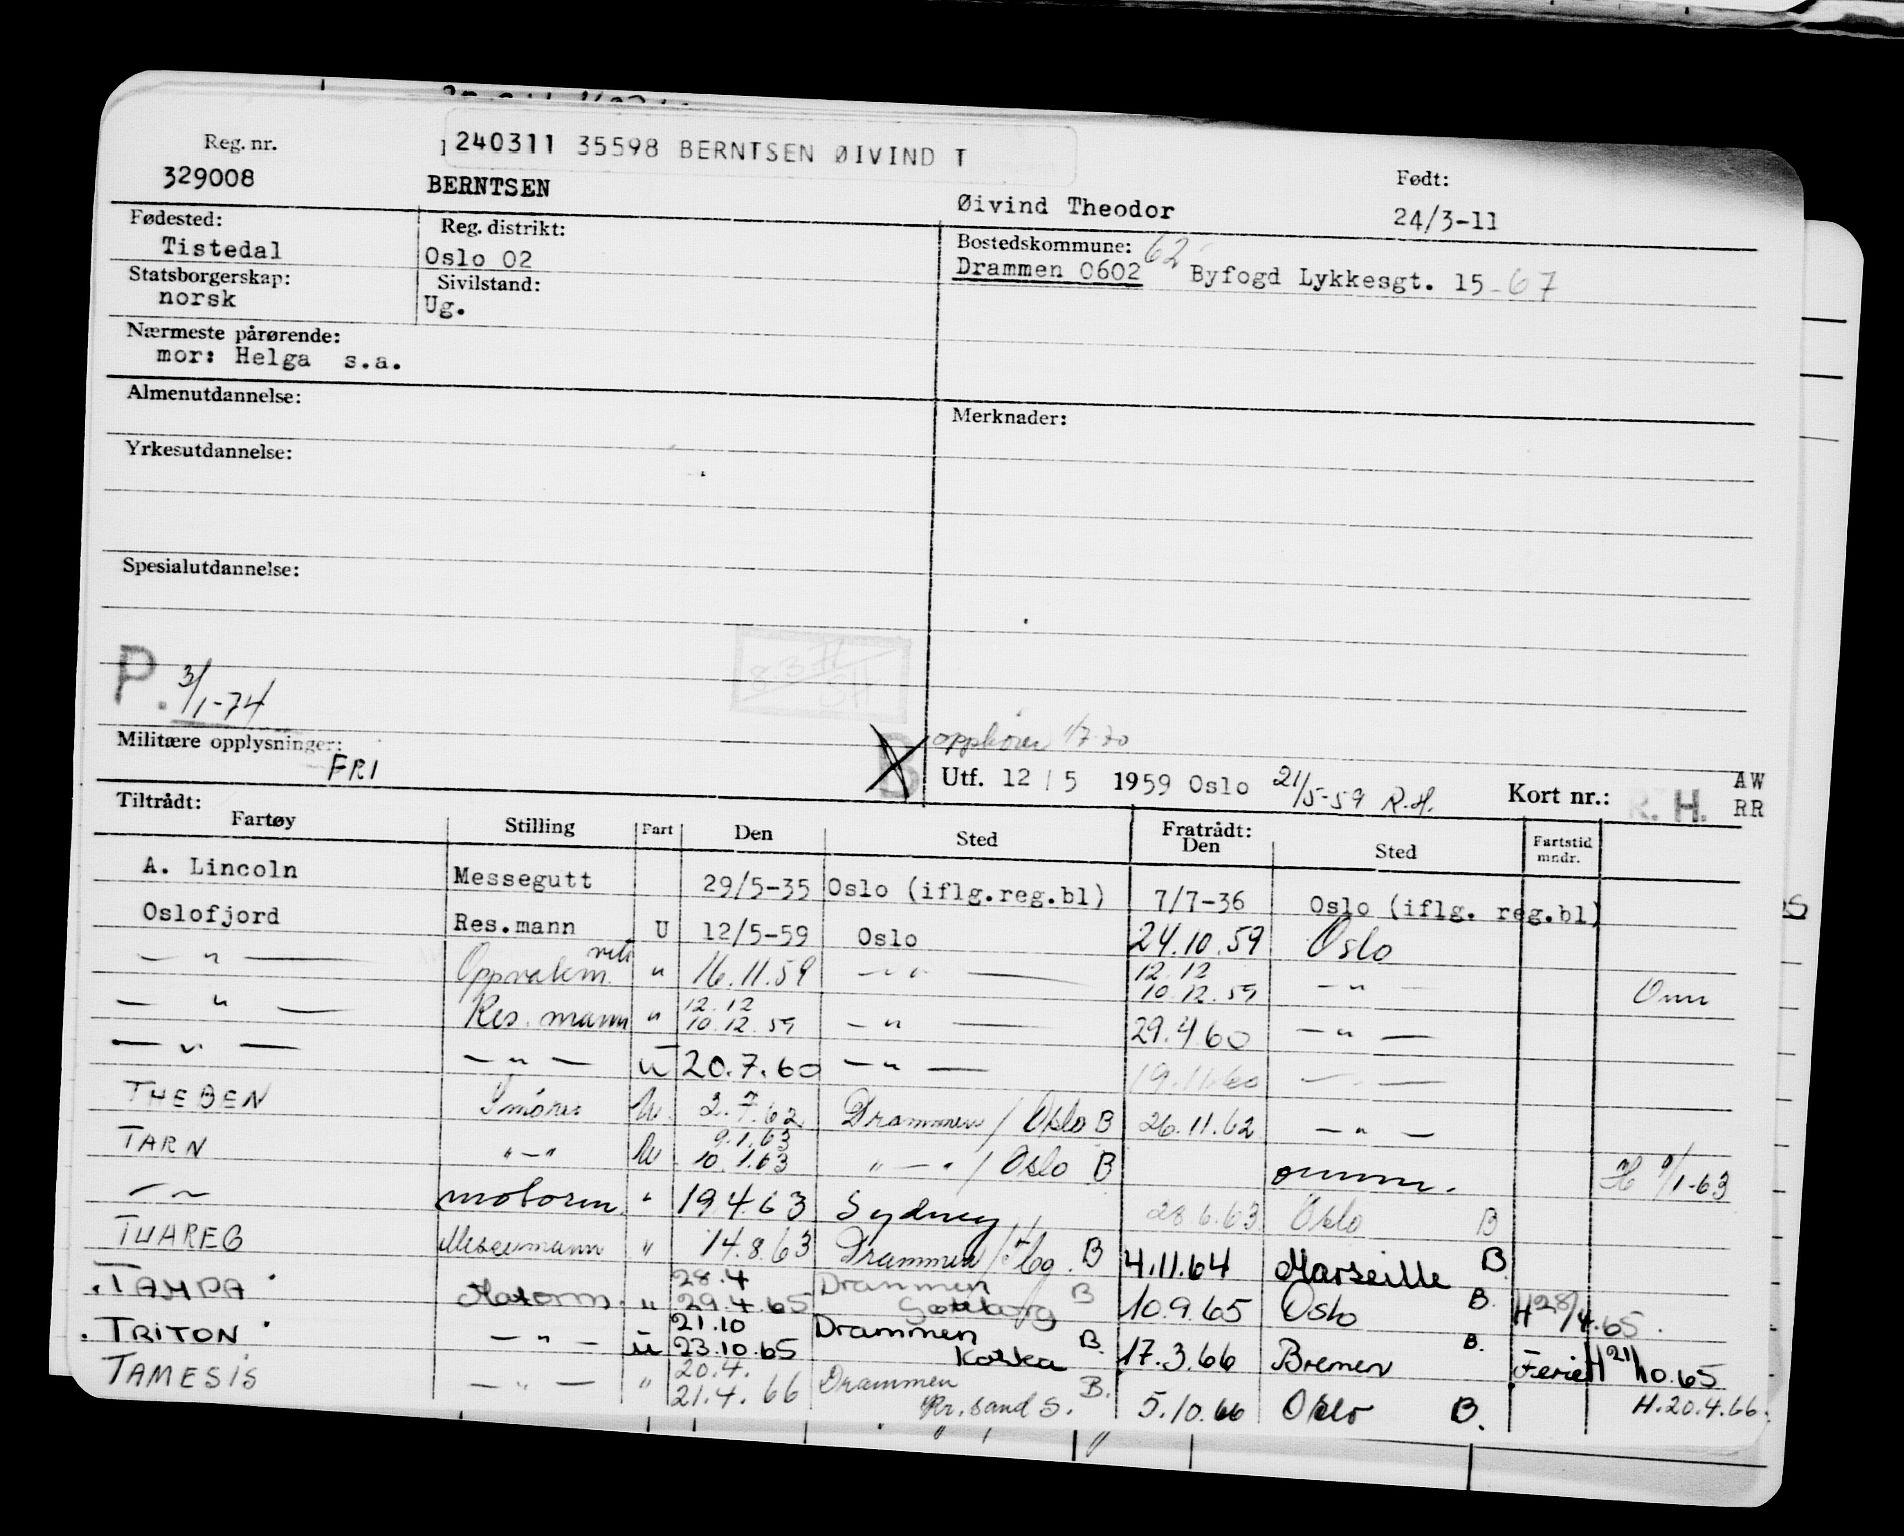 240311 35598 BERNTSEN ØIVIND T
Reg. nr. Født:
329008 BERNTSEN Øivind Theodor 24/3-11
Fødested: Reg. distrikt: Bostedskommune: 62
Tistedal Oslo 02 Drammen 0602 Byfogd Lykkesgt. 15 - 67
Statsborgerskap: Sivilstand:
norsk Ug.
Nærmeste pårørende:
mor: Helga s.a.
Almenutdannelse: Merknader:
Yrkesutdannelse:
Spesialutdannelse:
P. 3/1-74
Militære opplysninger: opphører 1/7-70
FRI B Utf. 12 / 5 1959 Oslo 21/5-59 R.H. Kort nr.: R. H. AW
RR
Tiltrådt: Fratrådt:
Fartøy Stilling Fart Den Sted Den Sted Fartstid mndr.
A. Lincoln Messegutt 29/5-35 Oslo (iflg.reg.bl) 7/7-36 Oslo (iflg. reg.bl)
Oslofjord Res.mann U 12/5-59 Oslo 24.10.59 Oslo
— " — " 16.11.59 — " — 12.12 10.12.59 — " —
— " — Res. mann " 12.12 10.12.59 — " — 29.4.60 — " —
— " — — " — U 20.7.60 — " — 19.11.60 — " —
THEBEN Smører U. 2.7.62 Drammen / Oslo B 26.11.62 — " —
TARN " — " U 9.1.63 10.1.63 " — " / Oslo B omm. H 9/1-63
— " — motorm. " 19.4.63 Sydney 28.6.63 Oslo B
TUAREG Messemann " 14.8.63 Drammen / B 4.11.64 Marseille B
TAMPA Motorm. " 28.4 29.4.65 Drammen Gøteborg B 10.9.65 Oslo B. H 28/4.65.
TRITON — " — U 21.10 23.10.65 Drammen B. 17.3.66 Bremen B. Ferie H 21/10.65
TAMESIS — " — " 20.4. 21.4.66 Drammen Kr.sand S. B. 5.10.66 Oslo B. H.20.4.66.